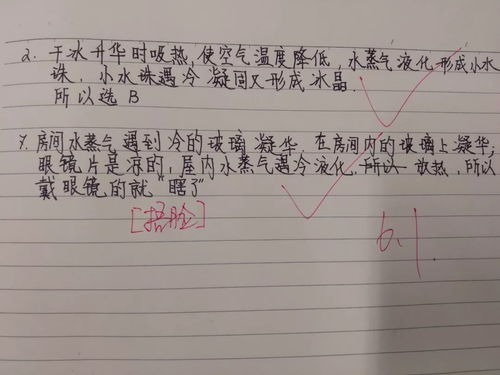 2. 干冰升华时吸热,使空气温度降低,水蒸气液化形成小水
珠,小水珠遇冷凝固又形成冰晶.
所以选B
7. 房间水蒸气遇到冷的玻璃凝华,在房间内的玻璃上凝华;
眼镜片是凉的,屋内水蒸气遇冷液化,所以放热,所以
戴眼镜的就“瞎了”
[捂脸]
6.1